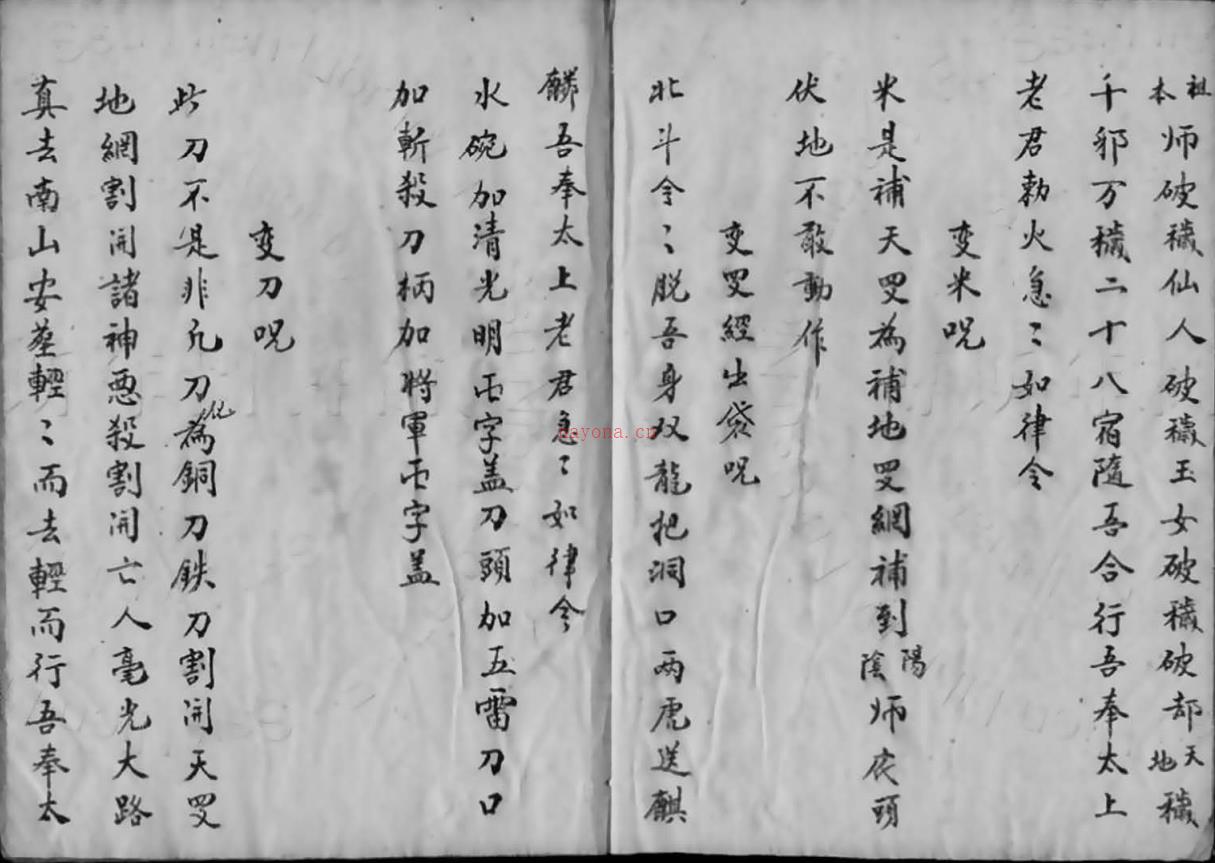 祖本师破穢仙人破穢玉女破穢破却天地穢
千邪万穢二十八宿隨吾合行吾奉太上
老君勅火急〻如律令
变米呪
米是補天罗為補地罗網補到陽陰师床頭
伏地不敢動作
变罗經出袋呪
北斗令〻脱吾身双龍把洞口两虎送麒
麟吾奉太上老君急〻如律令
水碗加清光明𠃵字盖刀頭加五雷刀口
加斬殺刀柄加將軍𠃵字盖
变刀呪
此刀不是非凡刀化為銅刀鉄刀割開天罗
地網割開諸神惡殺割開亡人毫光大路
真去南山安墓輕〻而去輕而行吾奉太
nayona.cn